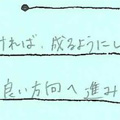 ければ、成るようにし
良い方向へ進み